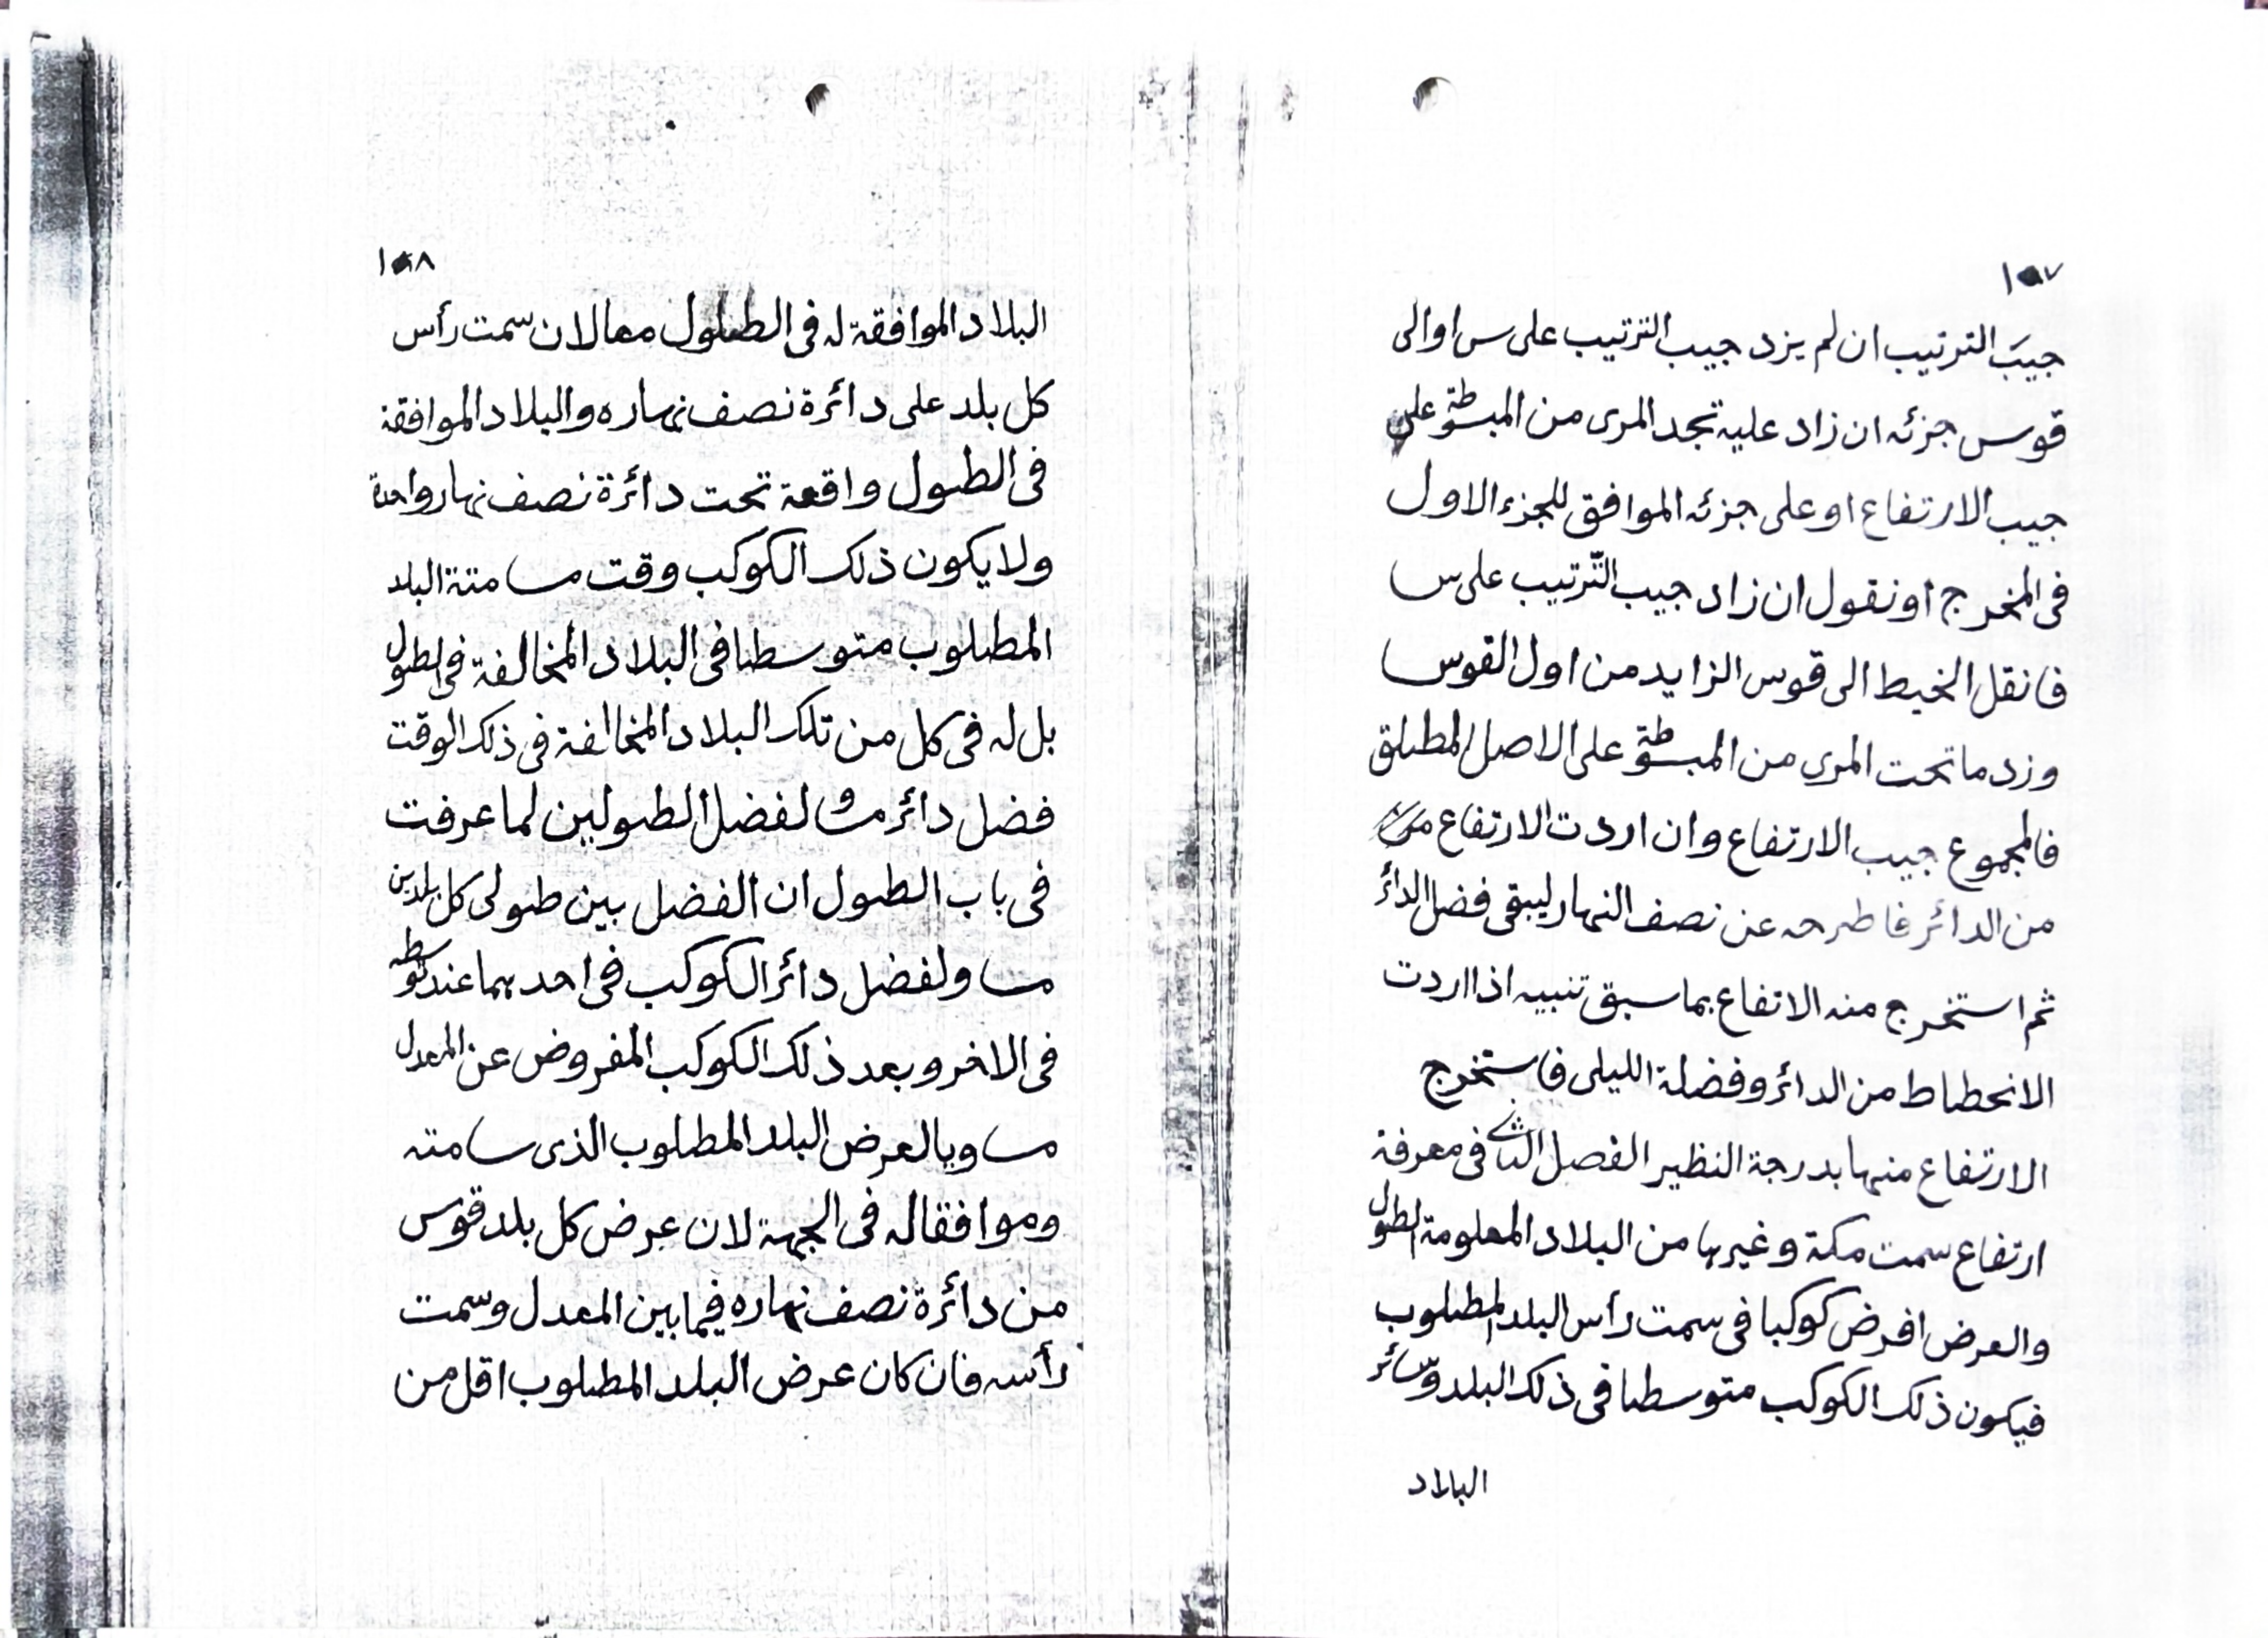 جيبَ الترتيب ان لم يزد جيب الترتيب على س او الى
قوس جزئه ان زاد عليه تجد المرى من المبسوطة على
جيب الارتفاع او على جزئه الموافق للجزء الاول
فى المخرج او نقول ان زاد جيب التّرتيب على س
فانقل الخيط الى قوس الزايد من اول القوس
وزد ما تحت المرى من المبسوطة على الاصل المطلق
فالمجموع جيب الارتفاع وان اردت الارتفاع
من الدائر فاطرحه عن نصف النهار ليبقى فضل الدائر
ثم استخرج منه الاتفاع بما سبق تنبيه اذا اردت
الانحطاط من الدائر وفضلة الليلى فاستخرج
الارتفاع منها بدرجة النظير الفصل الثانى فى معرفة
ارتفاع سمت مكة وغيرها من البلاد المعلومة الطول
والعرض افرض كوكبا فى سمت رأس البلد المطلوب
فيكون ذلك الكوكب متوسطا فى ذلك البلد وسائر
البلاد
البلاد الموافقة له فى الطول معا لان سمت رأس
كل بلد على دائرة نصف نهاره والبلاد الموافقة
فى الطول واقعة تحت دائرة نصف نهار واحدة
ولا يكون ذلك الكوكب وقت مسامتة البلد
المطلوب متوسطا فى البلاد المخالفة فى الطول
بل له فى كل من تلك البلاد المخالفة فى ذلك الوقت
فضل دائر مساو لفضل الطولين لما عرفت
فى باب الطول ان الفضل بين طولى كل بلدين
مساو لفضل دائر الكوكب فى احدهما عند توسطه
فى الاخر وبعد ذلك الكوكب المفروض عن المعدل
مساويا لعرض البلد المطلوب الذى سامته
وموافقا له فى الجهة لان عرض كل بلد قوس
من دائرة نصف نهاره فيما بين المعدل وسمت
رأسه فان كان عرض البلد المطلوب اقل من